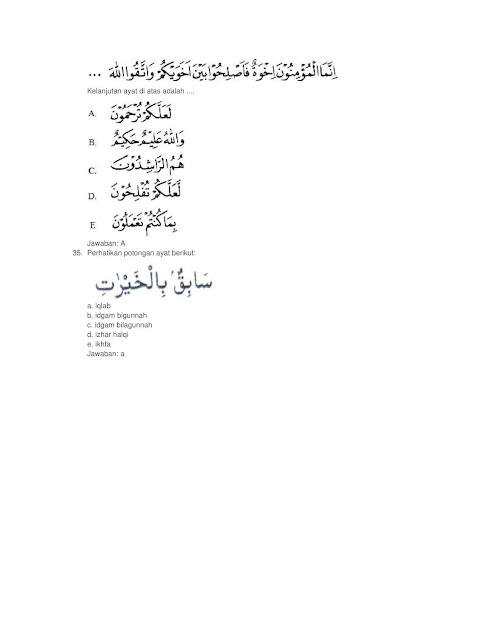 اِنَّمَا الْمُؤْمِنُوْنَ اِخْوَةٌ فَاَصْلِحُوْا بَيْنَ اَخَوَيْكُمْ وَاتَّقُوا اللهَ ...
Kelanjutan ayat di atas adalah ....
A. لَعَلَّكُمْ تُرْحَمُوْنَ
B. وَاللهُ عَلِيْمٌ حَكِيْمٌ
C. هُمُ الرَّاشِدُوْنَ
D. لَعَلَّكُمْ تُفْلِحُوْنَ
E بِمَا كُنْتُمْ تَعْمَلُوْنَ
Jawaban: A
35. Perhatikan potongan ayat berikut:
سَابِقٌۢ بِالْخَيْرٰتِ
a. iqlab
b. idgam bigunnah
c. idgam bilagunnah
d. izhar halqi
e. ikhfa
Jawaban: a